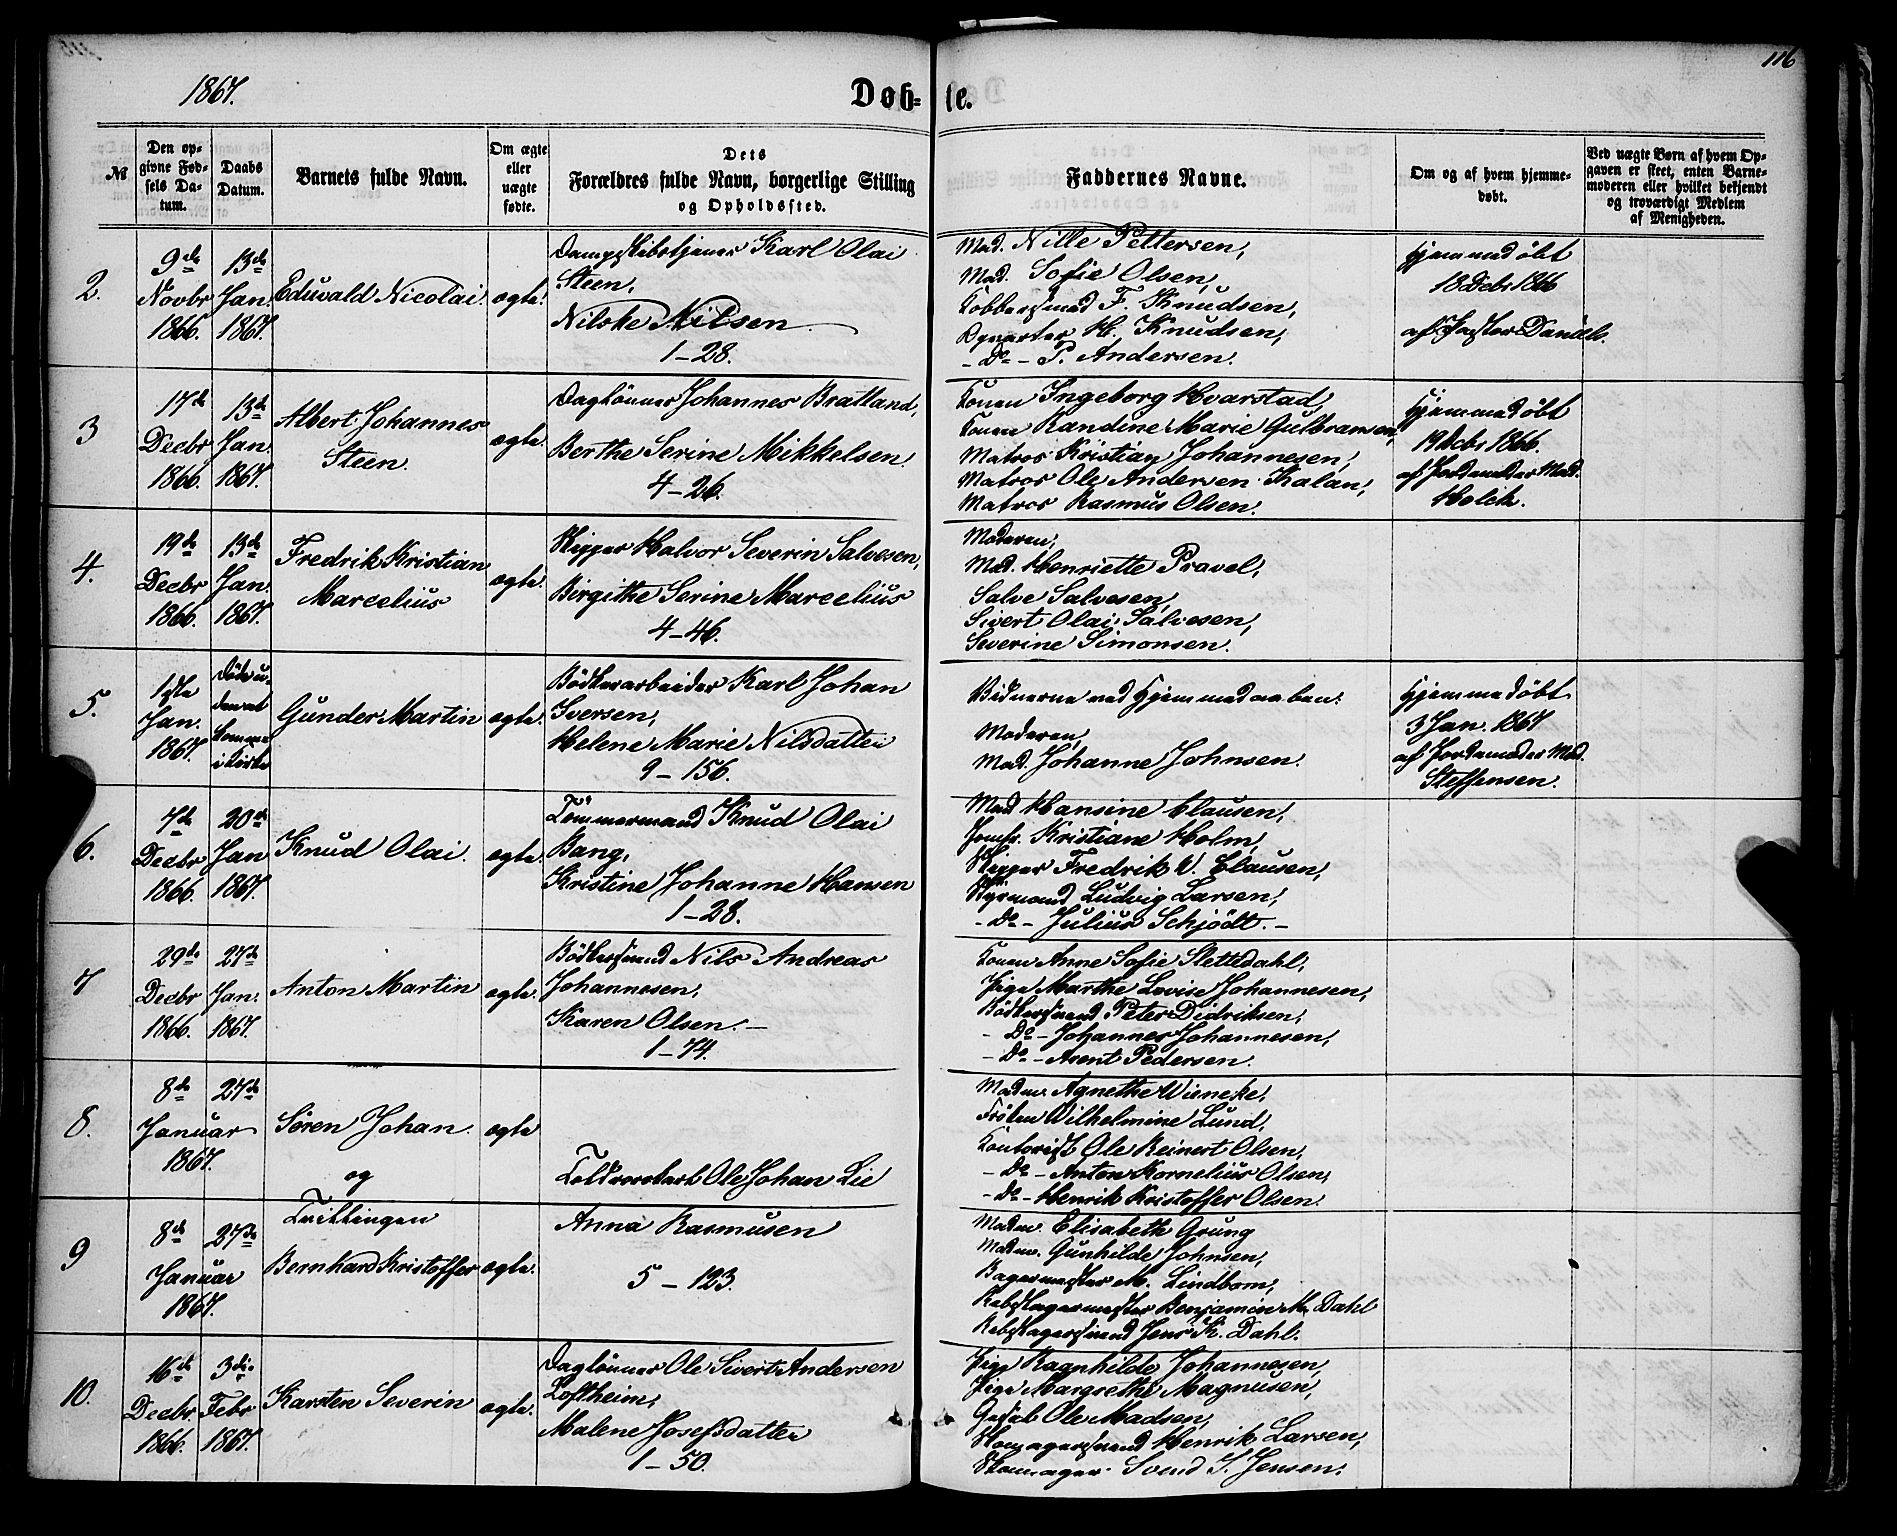 116
1867.
Døb-
te.
№
Den op-
givne Fød-
sels Da-
tum.
Daabs
Datum.
Barnets fulde Navn.
Om ægte
eller
uægte
fødte.
Dets
Forældres fulde Navn, borgerlige Stilling
og Opholdssted.
Faddernes Navne.
Om og af hvem hjemme-
døbt.
Ved uægte Børn af hvem Op-
gaven er skeet, enten Barne-
moderen eller hvilket bekjendt
og troværdigt Medlem
af Menigheden.
2.
9de
Novbr
1866.
13de
Jan.
1867.
Eduvald Nicolai.
ægte.
Dampskibstjener Karl Olai
Steen,
Nilske Nilsen
1-28.
Mad. Nille Pettersen,
Mad. Sofie Olsen,
Kobbersmed F. Knudsen,
H. Knudsen,
- Do - P. Andersen.
Hjemmedøbt
18 Decbr 1866
af Daniels.
3
17de
Decbr
1866.
13de
Jan.
1867.
Albert Johannes
Steen.
ægte.
Daglønner Johannes Bratland,
Berthe Serine Mikkelsen.
4-26.
Konen Ingeborg Hvarstad,
Konen Randine Marie Gulbransen,
Matros Kristian Johannesen,
Matros Ole Andersen Kalan,
Matros Rasmus Olsen.
Hjemmedøbt
19 Decbr 1866.
af Jordemoder Mad.
Holck.
4.
19de
Decbr
1866.
13de
Jan.
1867.
Fredrik Kristian
Marcelius
ægte.
Skipper Halvor Severin Salvesen,
Birgithe Serine Marcelius
4-46.
Moderen,
Mad. Henriette Pravel,
Salve Salvesen,
Sivert Olai Salvesen,
Severine Simonsen.
5.
1ste
Jan.
1867.
Døde u-
den at
komme
i Kirke
Gunder Martin
ægte.
Bødkerarbeider Karl Johan
Iversen,
Helene Marie Nilsdatter
9-156.
Vidnerne ved Hjemmedaaben:
Moderen,
Mad. Johanne Johnsen.
Hjemmedøbt
3 Jan. 1867
af Jordemoder Mad.
Steffensen.
6.
7de
Decbr
1866.
20de
Jan
1867.
Knud Olai.
ægte.
Tømmermand Knud Olai
Bang,
Kristine Johanne Hansen
1-28.
Mad Hansine Clausen,
Jomfr. Kristiane Holm,
Skipper Fredrik W. Clausen,
Styrmand Ludvig Larsen,
- Do - Julius Schjødt. -
7
29de
Decbr
1866.
27de
Jan.
1867.
Anton Martin
ægte.
Bødkersvend Nils Andreas
Johannesen,
Karen Olsen. -
1-74.
Konen Anne Sofie Slettedahl,
Pige Marthe Lovise Johannesen,
Bødkersvend Peter Didriksen,
- Do - Johannes Johannesen,
- Do - Arent Pedersen.
8.
8de
Januar
1867.
27de
Søren Johan.
og
ægte
Toldroerskarl Ole Johan Lie
Madm. Agnethe Wieneke,
Frøken Wilhelmine Lund,
Kontorist Ole Reinert Olsen,
- Do - Anton Kornelius Olsen,
- Do - Henrik Kristoffer Olsen.
9
8de
Januar
1867.
27de
Tvillingen
Bernhard Kristoffer
ægte.
Anna Rasmusen
5-123.
Madm. Elisabeth Grung
Madm. Gunhilde Johnsen,
Bagermester M. Lindbom,
Rebslagermester Benjamin M. Dahl
Rebslagersvend Jens K. Dahl.
10.
16de
Decbr.
1866.
3die
Febr
1867.
Karsten Severin
ægte.
Daglønner Ole Sivert Andersen
Loftheim,
Malene Josefsdatter
1-50.
Pige Ragnhilde Johannesen,
Pige Margrethe Magnusen,
Gesel Ole Madsen,
Skomagersvend Henrik Larsen,
Skomager Svend S. Jensen.